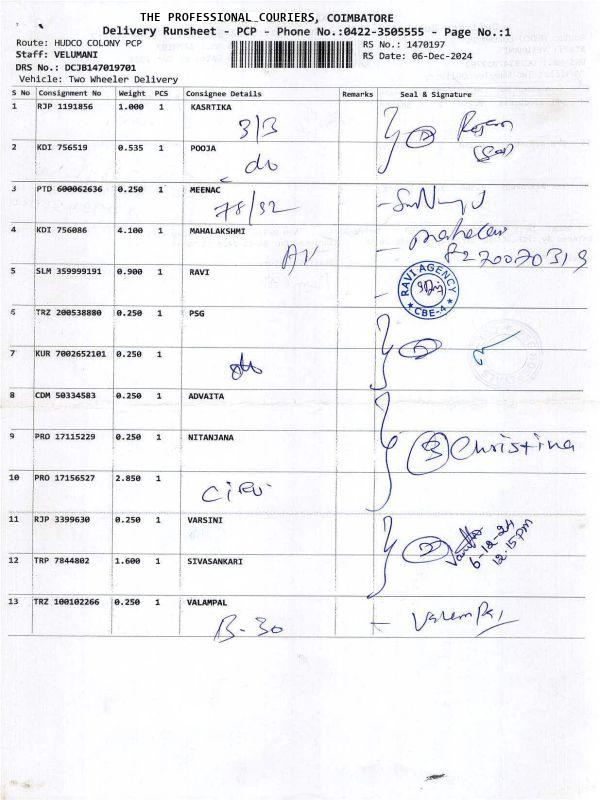 THE PROFESSIONAL_COURIERS, COIMBATORE
Delivery Runsheet - PCP - Phone No.:0422-3505555 - Page No.:1
Route: HUDCO COLONY PCP
Staff: VELUMANI
DRS No.: DCJB147019701
Vehicle: Two Wheeler Delivery
RS No.: 1470197
RS Date: 06-Dec-2024
S No Consignment No Weight PCS Consignee Details Remarks Seal & Signature
1 RJP 1191856 1.000 1 KASRTIKA
3/3
2 KDI 756519 0.535 1 POOJA
do
3 PTD 600062636 0.250 1 MEENAC
78/92
4 KDI 756086 4.100 1 MAHALAKSHMI
8270070319
5 SLM 359999191 0.900 1 RAVI
RAVI AGENCY
CBE-4
6 TRZ 200538880 0.250 1 PSG
7 KUR 7002652101 0.250 1
8 CDM 50334583 0.250 1 ADVAITA
9 PRO 17115229 0.250 1 NITANJANA
3 Christina
10 PRO 17156527 2.850 1
11 RJP 3399630 0.250 1 VARSINI
2
6-12-24
12.15PM
12 TRP 7844802 1.600 1 SIVASANKARI
13 TRZ 100102266 0.250 1 VALAMPAL
B-30